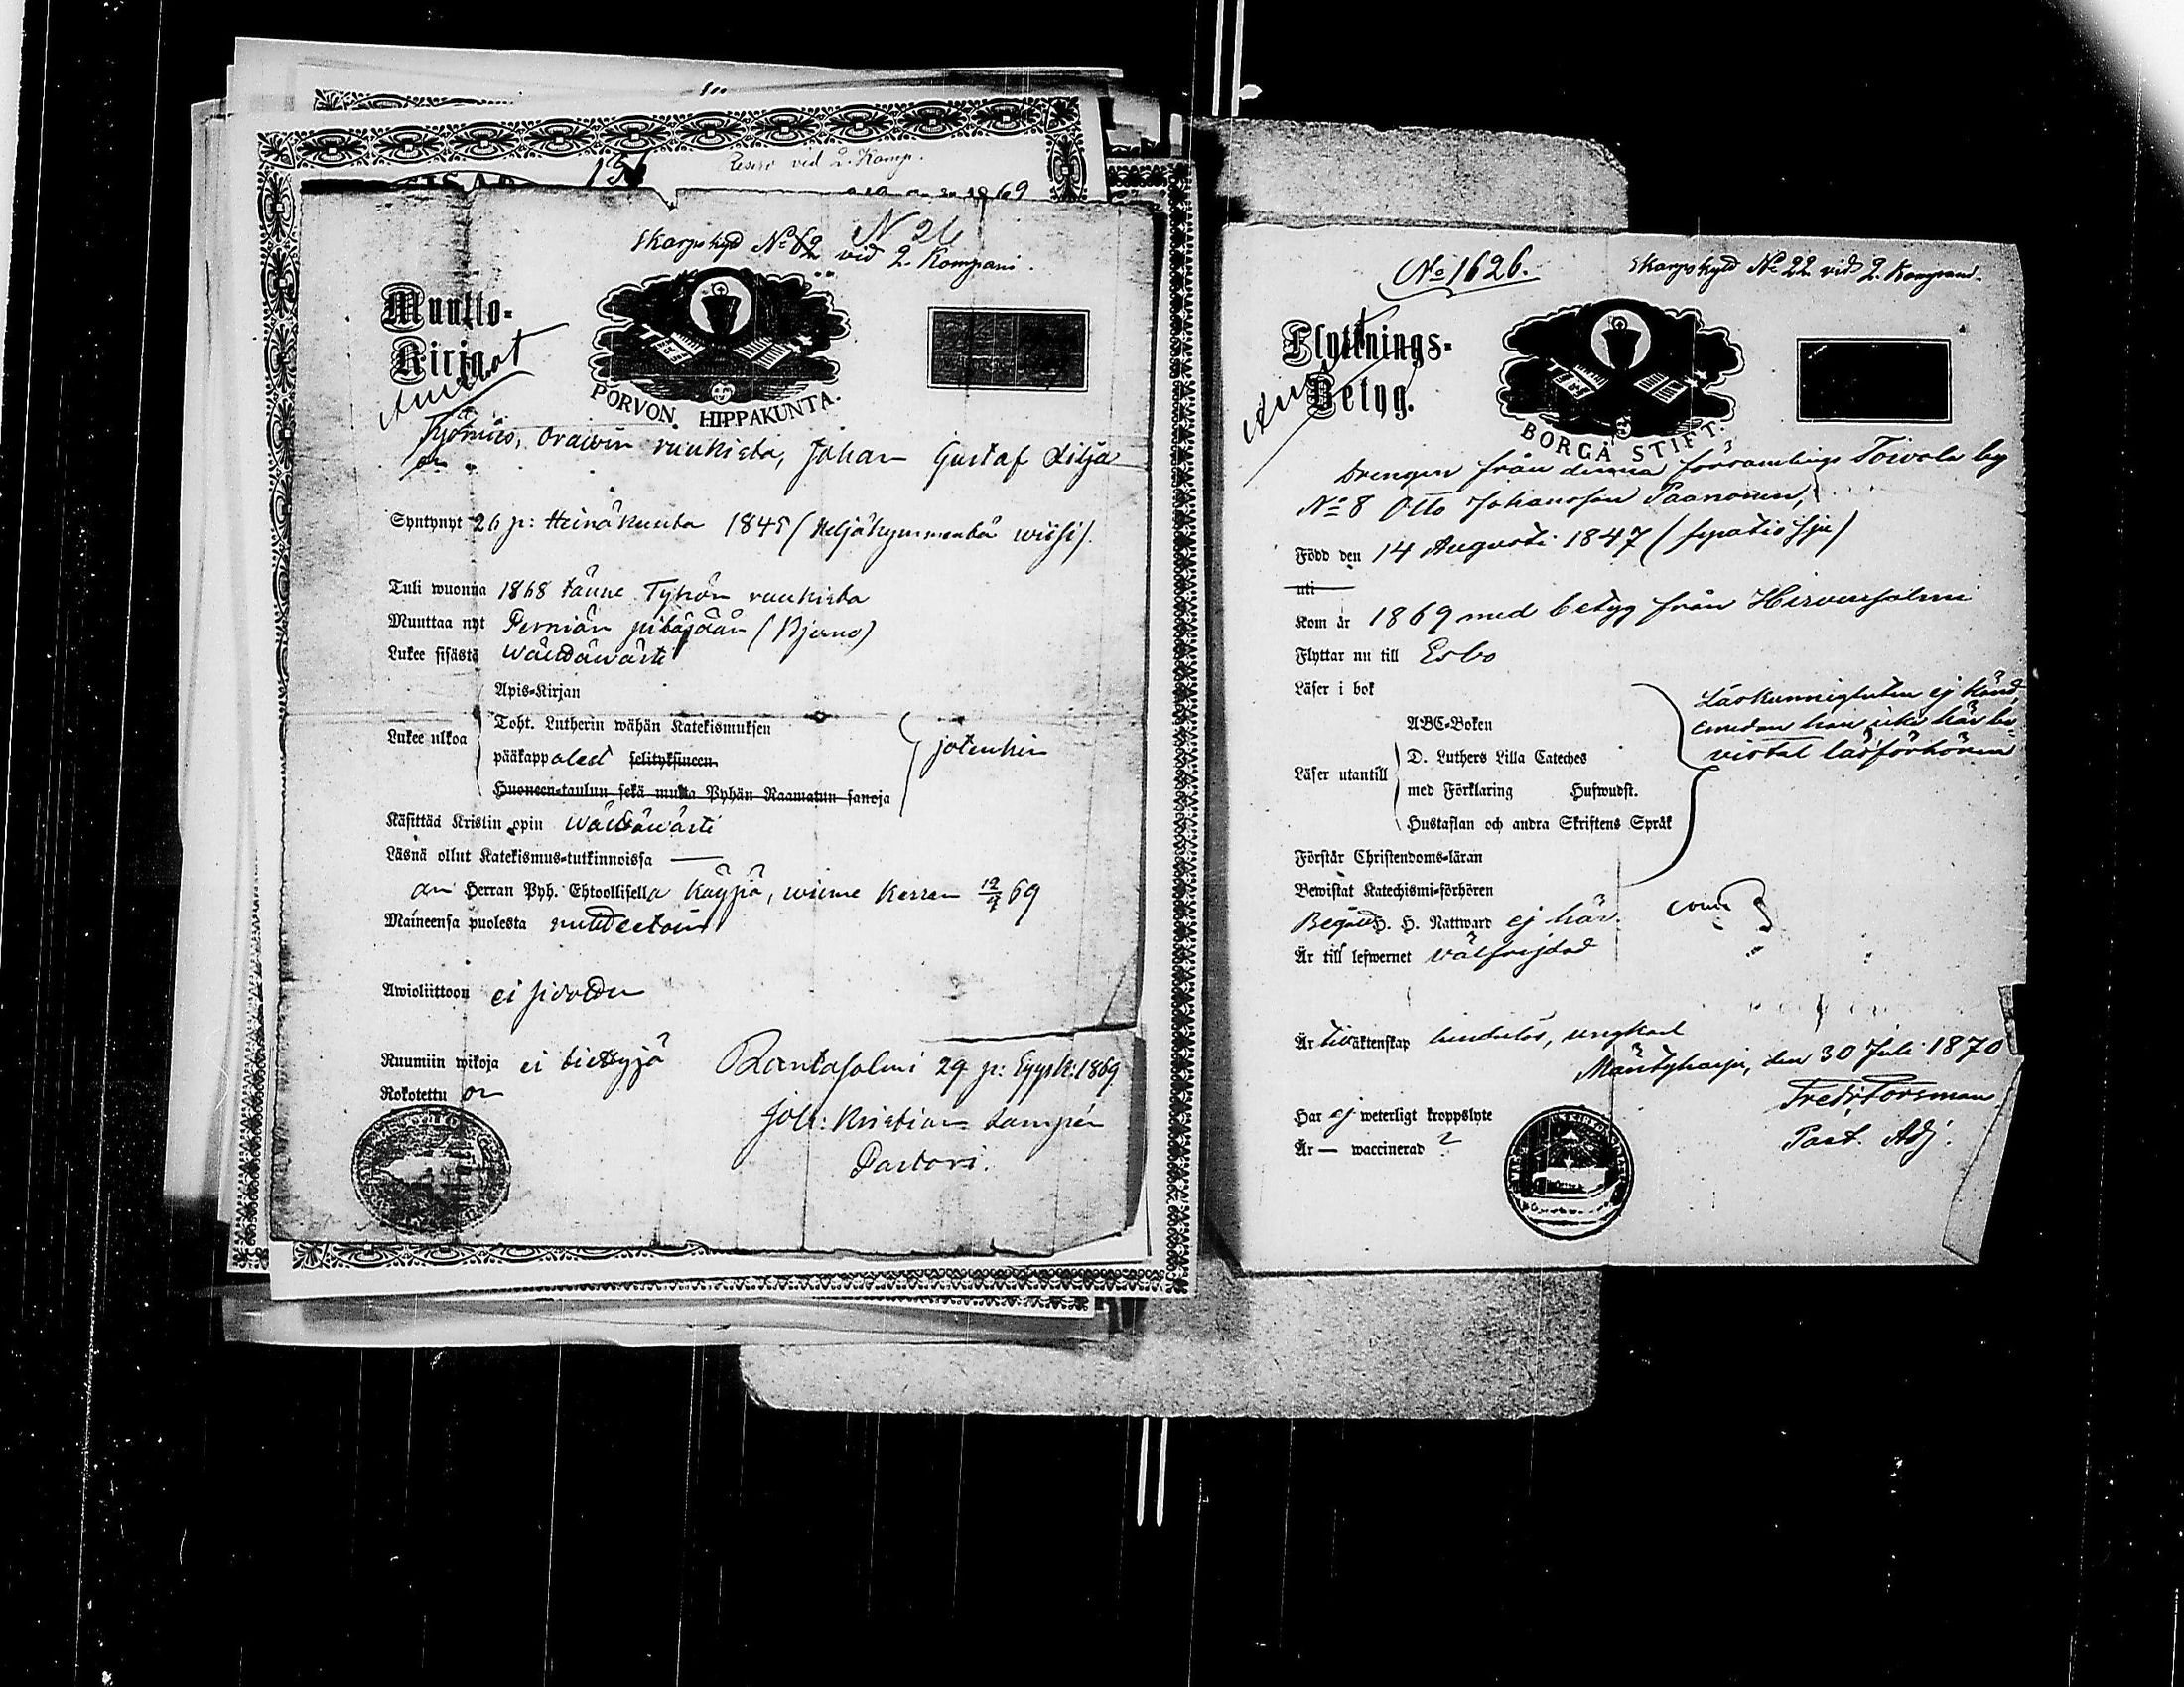 156
Reserv vid 2. Komp.
69
Skarpskyd No 62 vid 2. Kompani.
N 26
Muutto-
Kirja.
PORVON HIPPAKUNTA.
Työmies, Orawin ruukista, Johan Gustaf Lilja
on
Syntynyt 26 p: Heinäkuuta 1845 (Neljäkymmentä wiisi).
Tuli wuonna 1868 tänne Tyhön ruukista
Muuttaa nyt Perniön pitäjään (Bjerno)
Lukee sisästä wälttäwästi
Apis-Kirjan
Lukee ulkoa
Toht. Lutherin wähän Katekismuksen
pääkappaleet selityksineen
Huoneen-taulun sekä muita Pyhän Raamatun sanoja
jotenkin
Käsittää Kristin opin wälttäwästi
Läsnä ollut Katekismus-tutkinnoissa —
on Herran Pyh. Ehtoollisella käypä, wiime kerran 12/9 69
Maineensa puolesta nuhteetoin
Awioliittoon ei sidottu
Ruumiin wikoja ei tiettyjä
Rantasalmi 29 p: Syysk: 1869
Rokotettu on
Joh: Kristian Lampén
Pastori.
No 1626.
Skarpskyld No 22 vid 2. Kompani.
Flyttnings-
Betyg.
BORGÅ STIFT.
Drengen från denna församlings Toivola by
No 8 Otto Johansson Paanonen,
Född den 14 Augusti 1847 (fyratio sju)
uti
Kom år 1869 med betyg från Hirvensalmi
Flyttar nu till Esbo
Läser i bok
ABC-Boken
Läser utantill
D. Luthers Lilla Cateches
med Förklaring Hufwudst.
Hustaflan och andra Skriftens Språk
Läskunnigheten ej känd,
emedan han icke här be-
vistat läsförhören
Förstår Christendoms-läran
Bewistat Katechismi-förhören
Begått H. H. Nattward ej här.
Är till lefwernet välfrejdad
Är till äktenskap hinderlös, ungkarl
Mäntyharju, den 30 Juli 1870
Fredr. Forsman
Past. Adj.
Har ej weterligt kroppslyte
Är — waccinerad ?